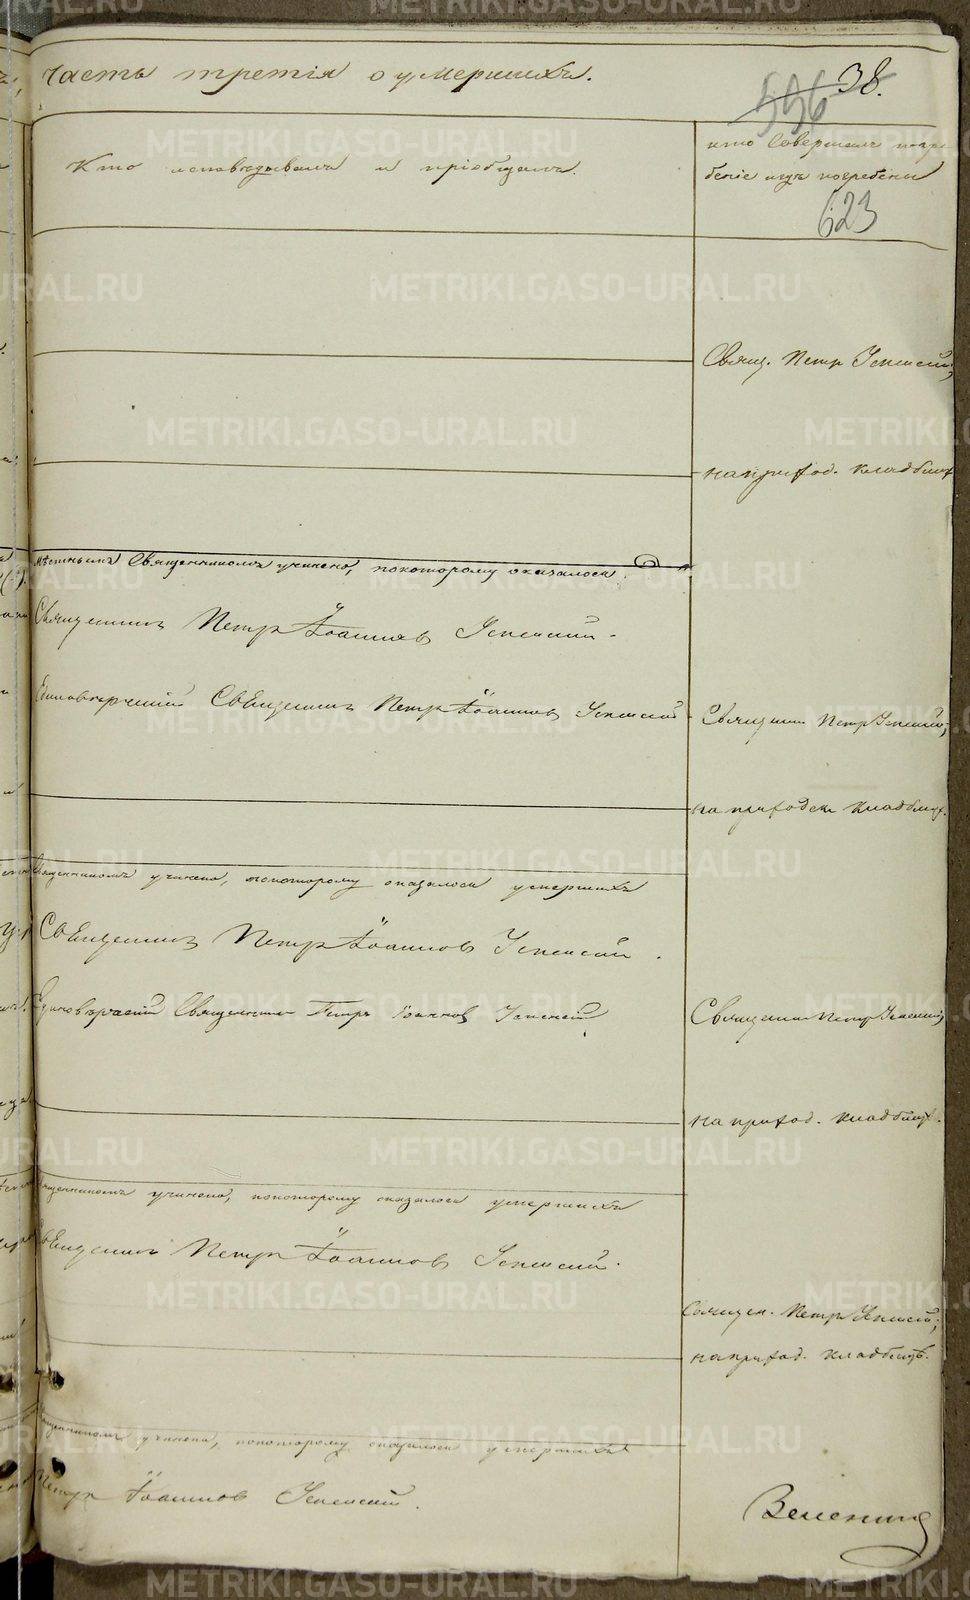 Часть третія о умершихъ.
556
38.
Кто исповѣдывалъ и пріобщалъ.
кто совершалъ погре
беніе и гдѣ погребены
623
Свящ. Петр Успенскій;
на приход. кладбищѣ
мѣстнымъ Священникомъ учинено, по которому оказалося
Священникъ Петръ Іоанновъ Успенскій.
Единовѣрческій Священникъ Петръ Іоанновъ Успенскій
Священникъ Петръ Успенскій;
на приходск кладбищѣ.
Священникомъ учинено, по которому оказалося умершихъ
Священникъ Петръ Іоанновъ Успенскій.
Единовѣрческій Священникъ Петръ Іоанновъ Успенскій
Священникъ Петръ Успенскій;
на приход. кладбищѣ.
Священникомъ учинено, по которому оказалося умершихъ
Священникъ Петръ Іоанновъ Успенскій.
Священ. Петръ Успенскій;
на приход. кладбищѣ.
Священникомъ учинено, по которому оказалося умершихъ
Петръ Іоанновъ Успенскій.
METRIKI.GASO-URAL.RU